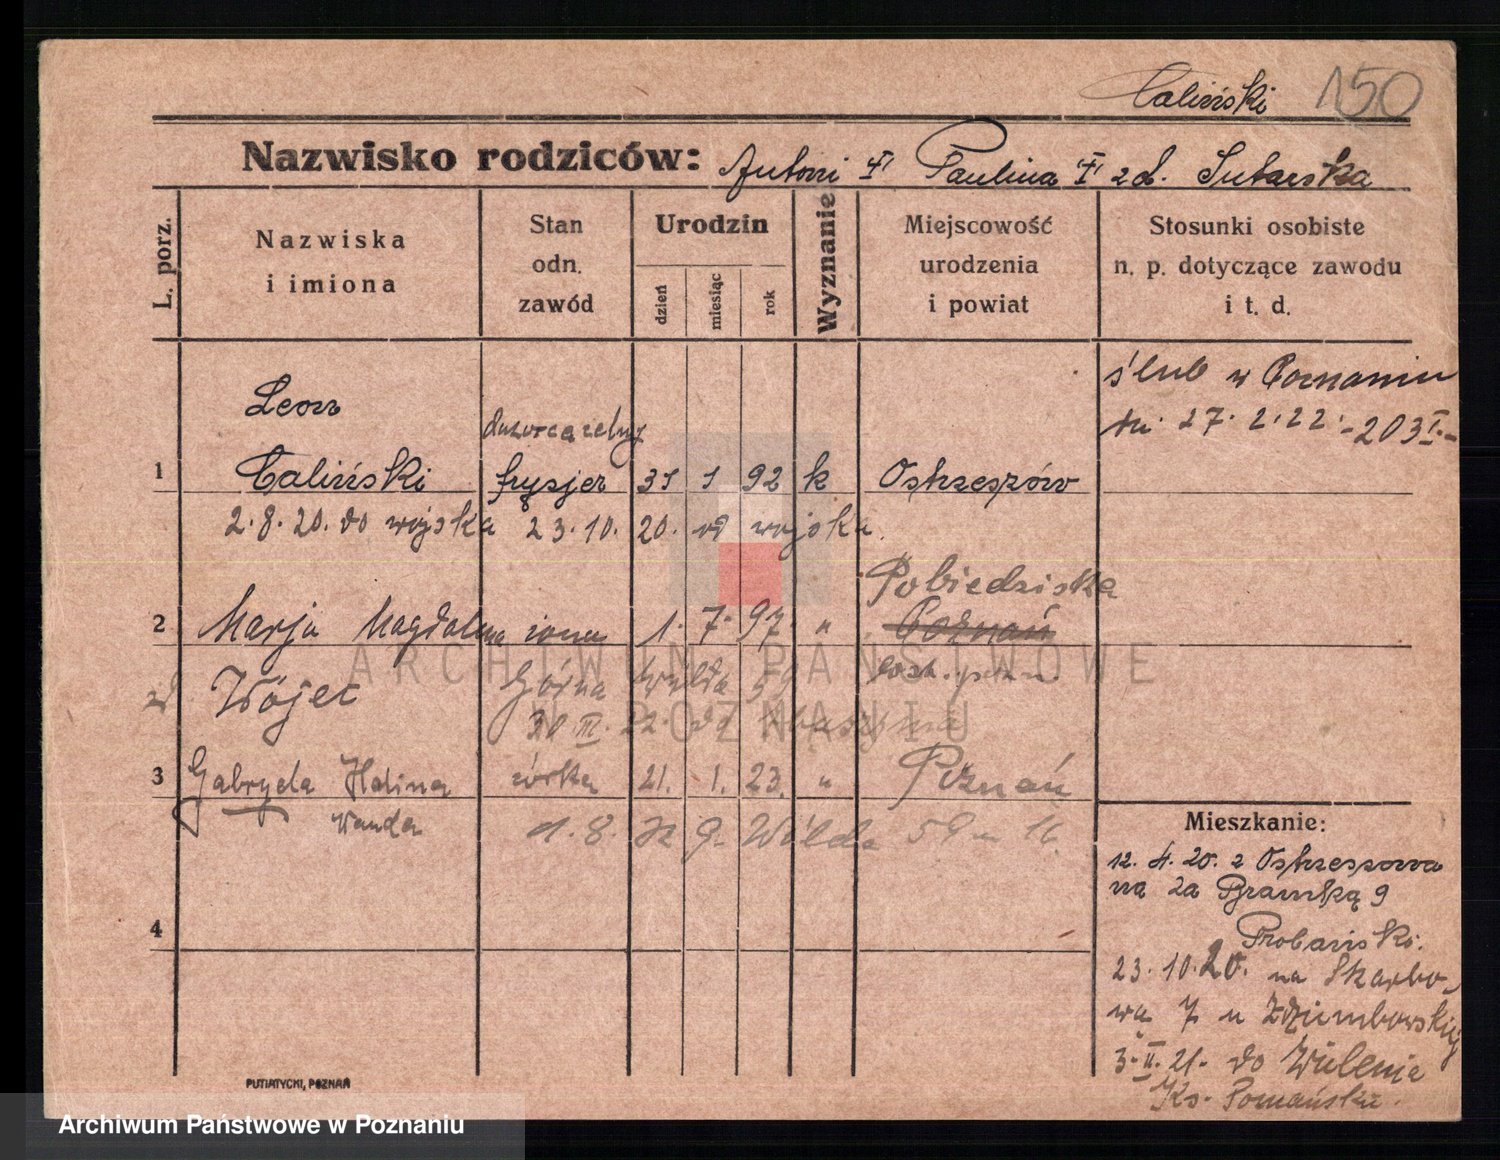 Caliński 150
Nazwisko rodziców: Antoni Paulina zd. Sutarska
L. porz.
Nazwiska i imiona
Stan odn. zawód
Urodzin
dzień
miesiąc
rok
Wyznanie
Miejscowość urodzenia i powiat
Stosunki osobiste n. p. dotyczące zawodu i t. d.
ślub w Poznaniu
27. 2. 22. - 203
Leon
1 Caliński fryzjer 31 1 92 k Ostrzeszów
2. 8. 20. do wojska 23. 10. 20. od wojska.
Pobiedziska
2 Marja Magdalena żona 1. 7. 97. " Poznań
zd Wójec Górna Wilda 59
30 III. 22.
3 Gabryela Halina córka 21. 1. 23. " Poznań
Wanda 1. 8. G. Wilda 59
4
Mieszkanie:
12. 4. 20. z Ostrzeszowa
na Za Bramką 9
23. 10. 20. na Skarbo-
wa 7 u
3. II. 21. do Wielenia
Ks. Poznańskie.
PUTIATYCKI, POZNAŃ
ARCHIWUM PAŃSTWOWE
W POZNANIU
Archiwum Państwowe w Poznaniu